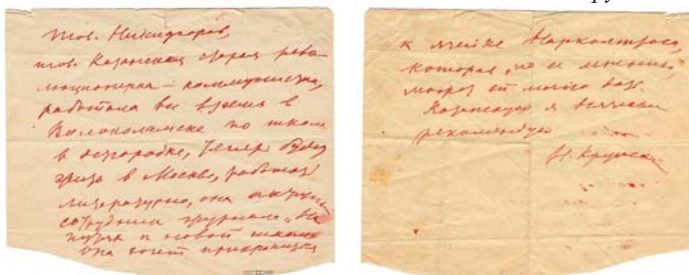 Тов. Никифоров,
тов. Казанская старая рево
люционерка – коммунистка,
работала все время в
Волоколамске по школе
в Москве, работая
литературно, она
сотрудник журнала „На
путях к новой школе"
она хочет прикрепиться
к ячейке Наркомпроса,
которая, по ее мнению,
от моего
Казанскую я всячески
рекомендую
Н. Крупская